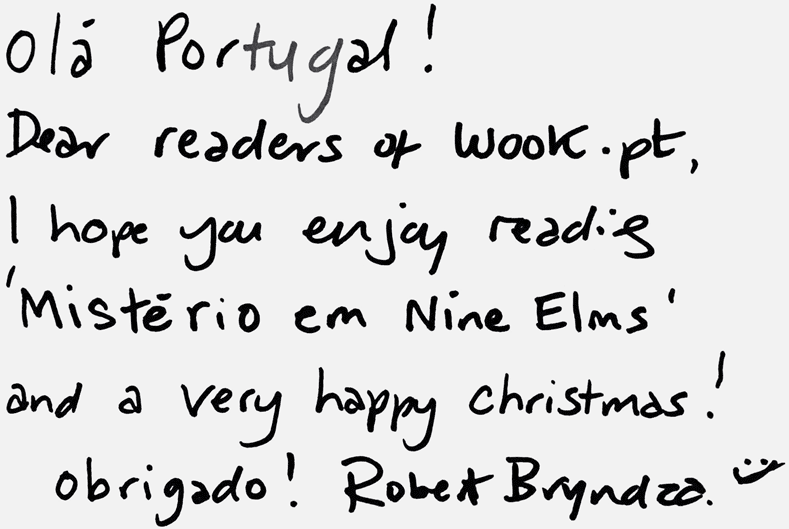 Olá Portugal!
Dear readers of wook.pt,
I hope you enjoy reading
'Mistério em Nine Elms'
and a very happy christmas!
obrigado! Robert Bryndza. :)